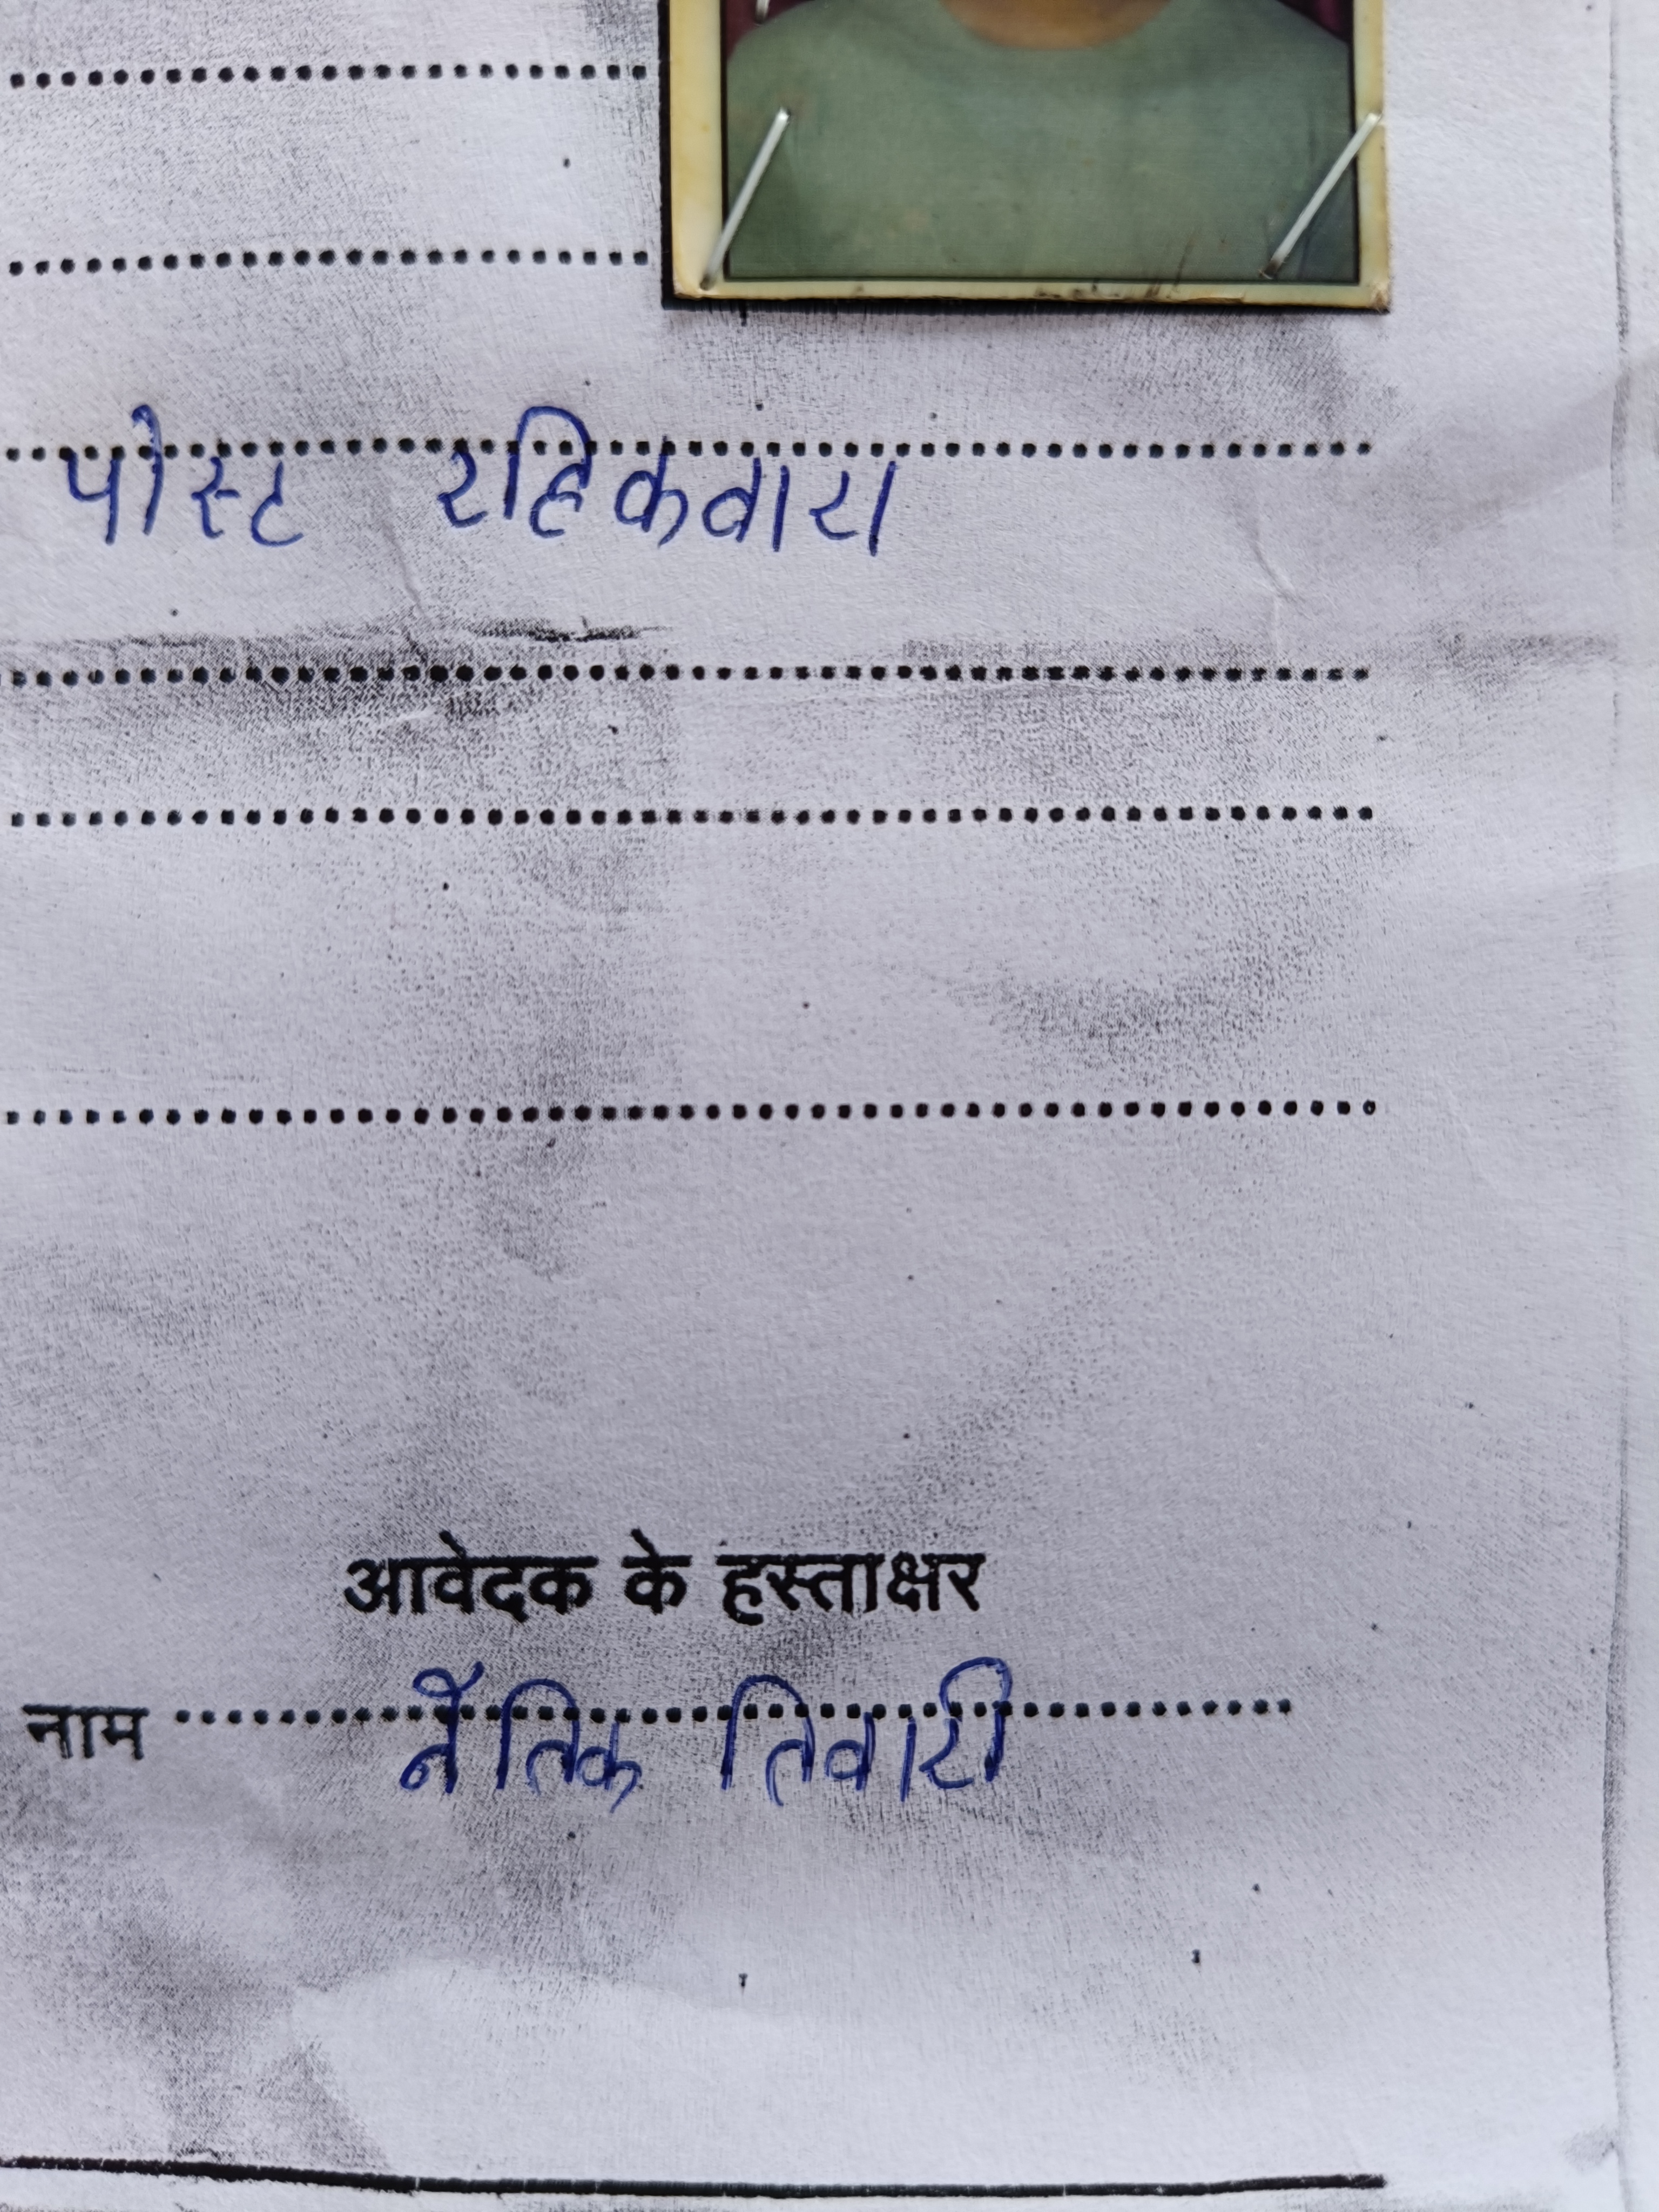 पोस्ट रहिकवारा
आवेदक के हस्ताक्षर
नाम नैतिक तिवारी